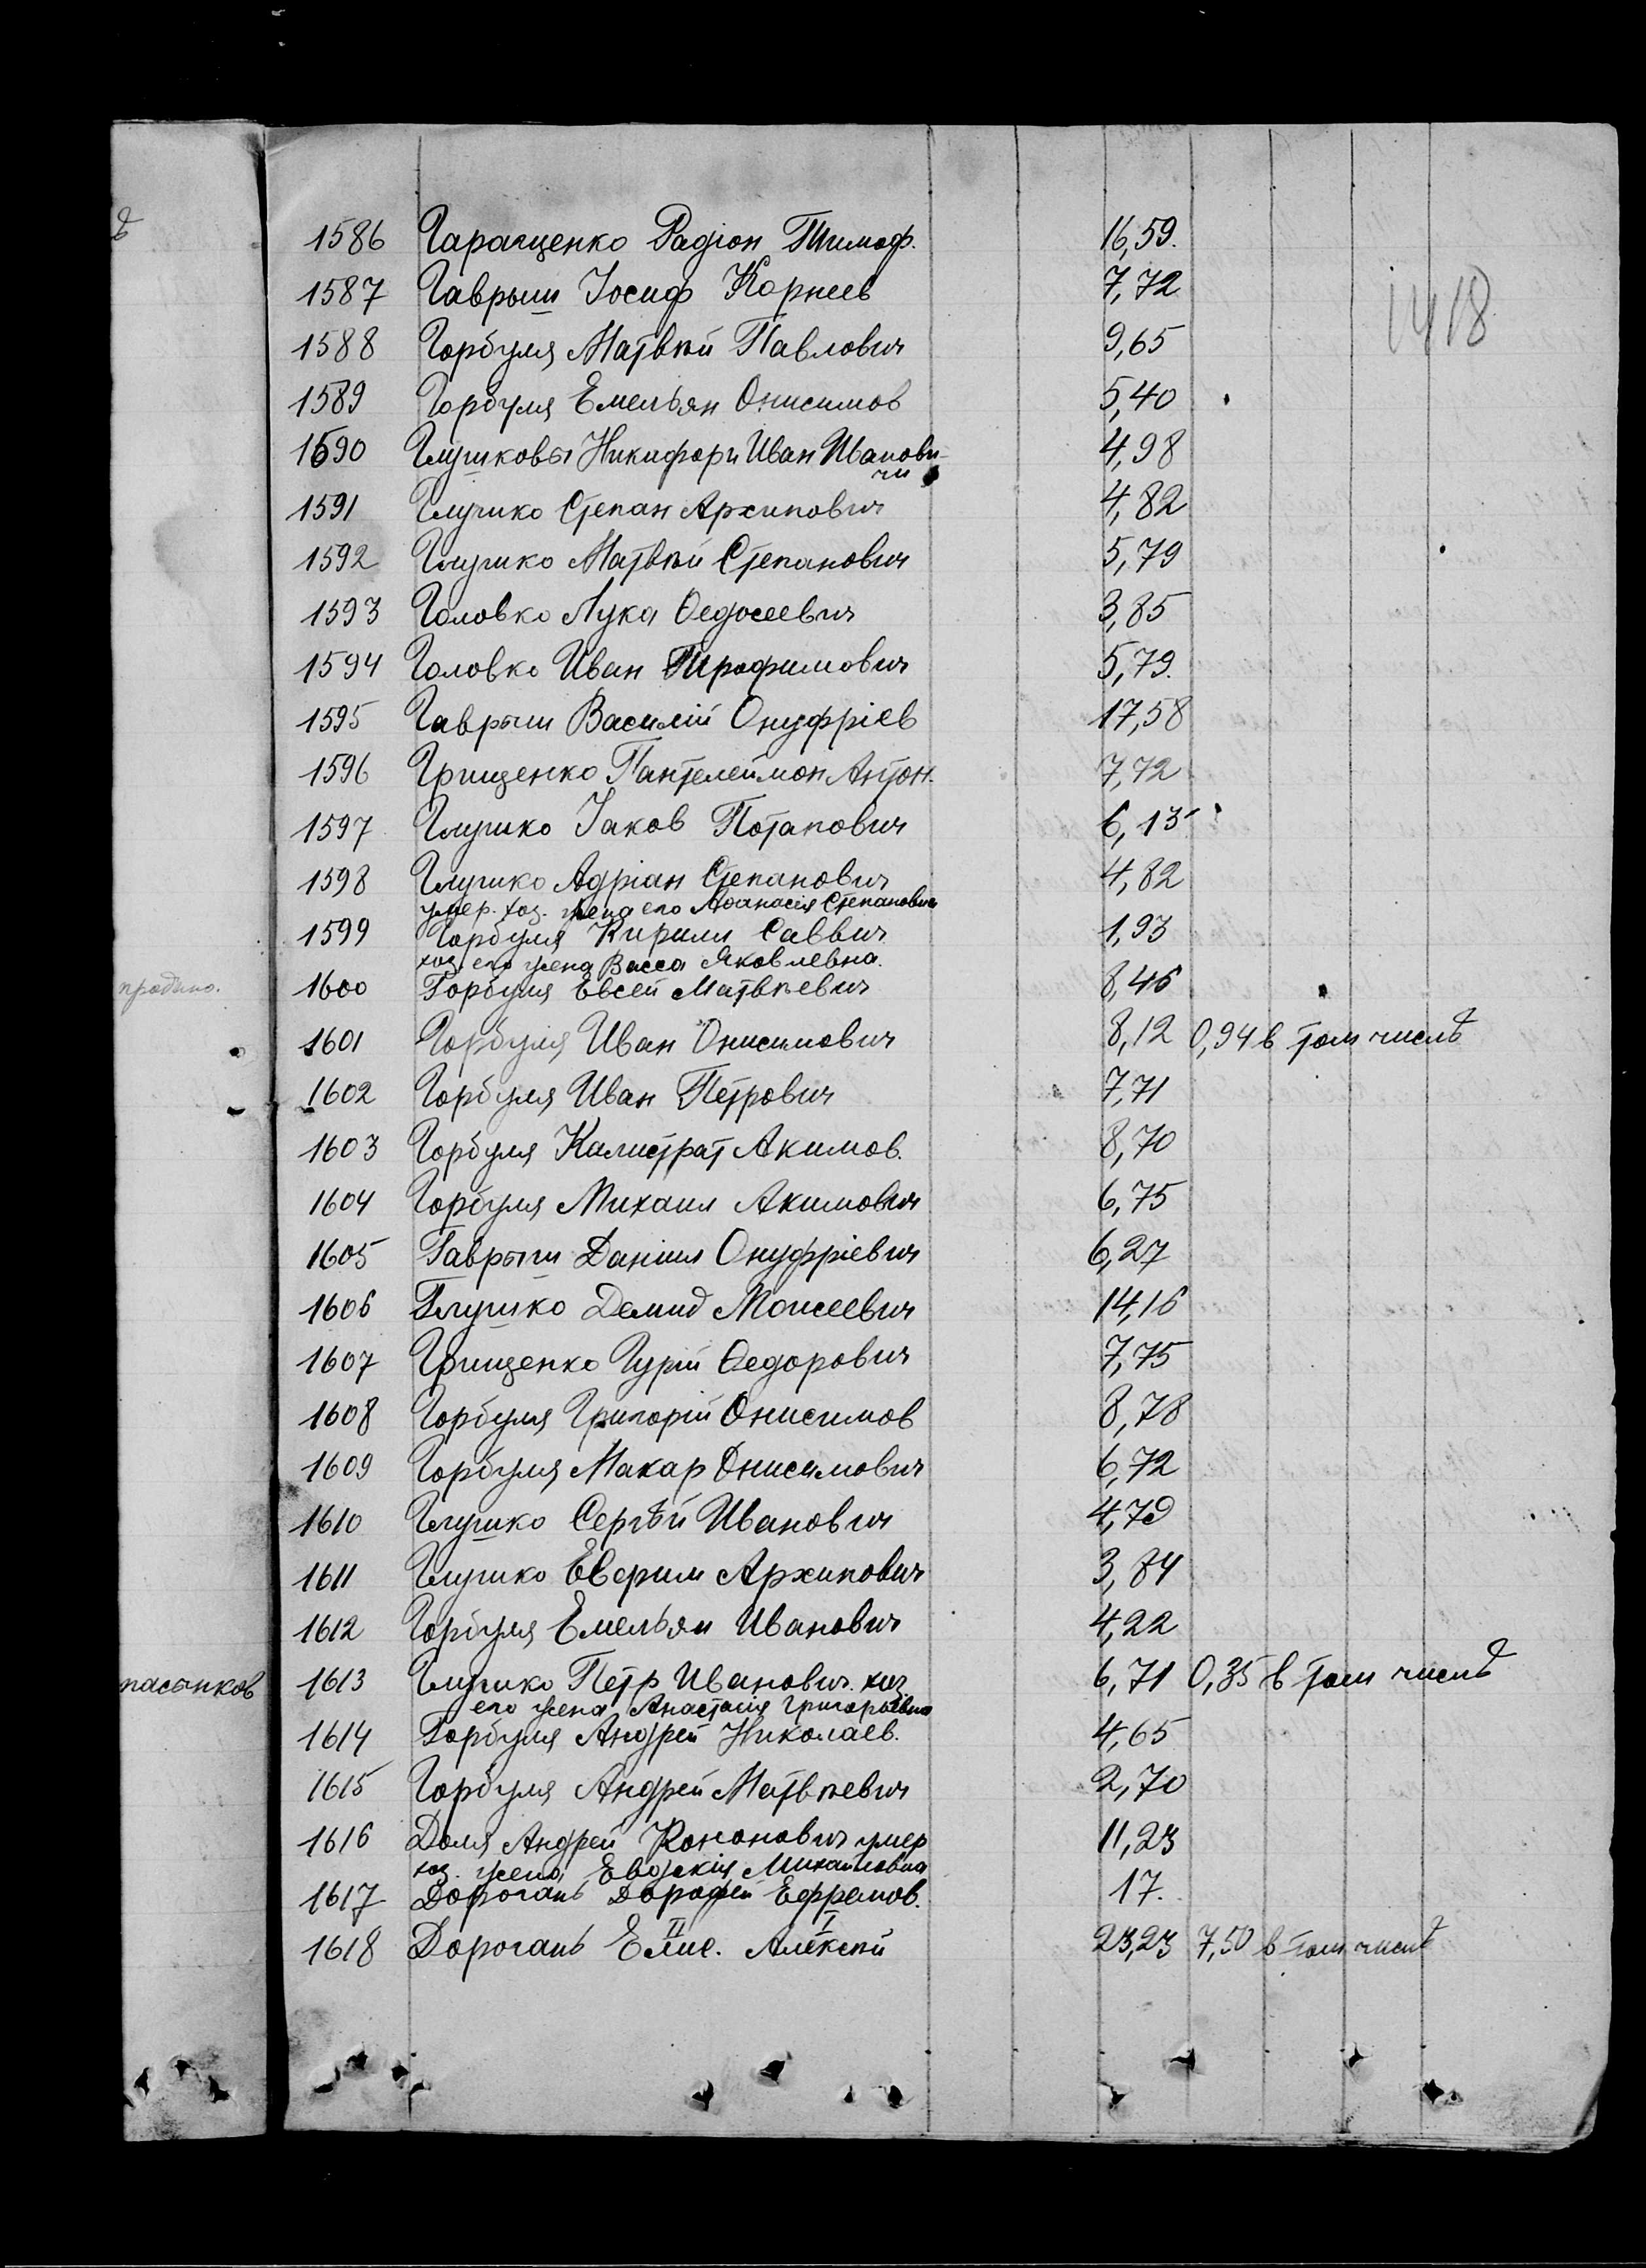 ѣ
1418
1586 Гаращенко Радіон Тимоф. 16,59.
1587 Гаврыш Іосиф Корнеев 7,72
1588 Горбуля Матвѣй Павлович 9,65
1589 Горбуля Емельян Онисимов 5,40
1590 Глушковы Никифор и Иван Иванови-
чи 4,98
1591 Глушко Степан Архипович 4,82
1592 Глушко Матвѣй Степанович 5,79
1593 Головко Лука Ѳедосеевич 3,85
1594 Головко Иван Трофимович 5,79.
1595 Гаврыш Василій Онуфріев 17,58
1596 Грищенко Пантелеймон Антон. 7,72
1597 Глушко Іаков Потапович 6,13
1598 Глушко Адріан Степанович 4,82
умер. хоз. жена его Аѳанасія Степановна
1599 Горбуля Кирилл Саввич 1,93
хоз. его жена Васса Яковлевна.
продано.
1600 Горбуля Евсей Матвѣевич 8,46
1601 Горбуля Иван Онисимович 8,12 0,94 в том числѣ
1602 Горбуля Иван Петрович 7,71
1603 Горбуля Калистрат Акимов. 8,70
1604 Горбуля Михаил Акимович 6,75
1605 Гаврыш Даніил Онуфріевич 6,27
1606 Глушко Демид Моисеевич 14,16
1607 Грищенко Гурій Ѳедорович 7,75
1608 Горбуля Григорій Онисимов 8,78
1609 Горбуля Макар Онисимович 6,72
1610 Глушко Сергѣй Иванович 4,79
1611 Глушко Архипович 3,84
1612 Горбуля Емельян Иванович 4,22
пасынков
1613 Глушко Петр Иванович хоз. 6,71 0,35 в том числѣ
его жена Анастасія Григорьевна
1614 Горбуля Андрей Николаев. 4,65
1615 Горбуля Андрей Матвѣевич 2,70
1616 Доля Андрей Кононович умер 11,23
хоз. жена Евдокія Михайловна
1617 Дорогань Дорофей Ефремов. 17.
1618 Дорогань II I Алексѣй 23,23 7,50 в том числѣ